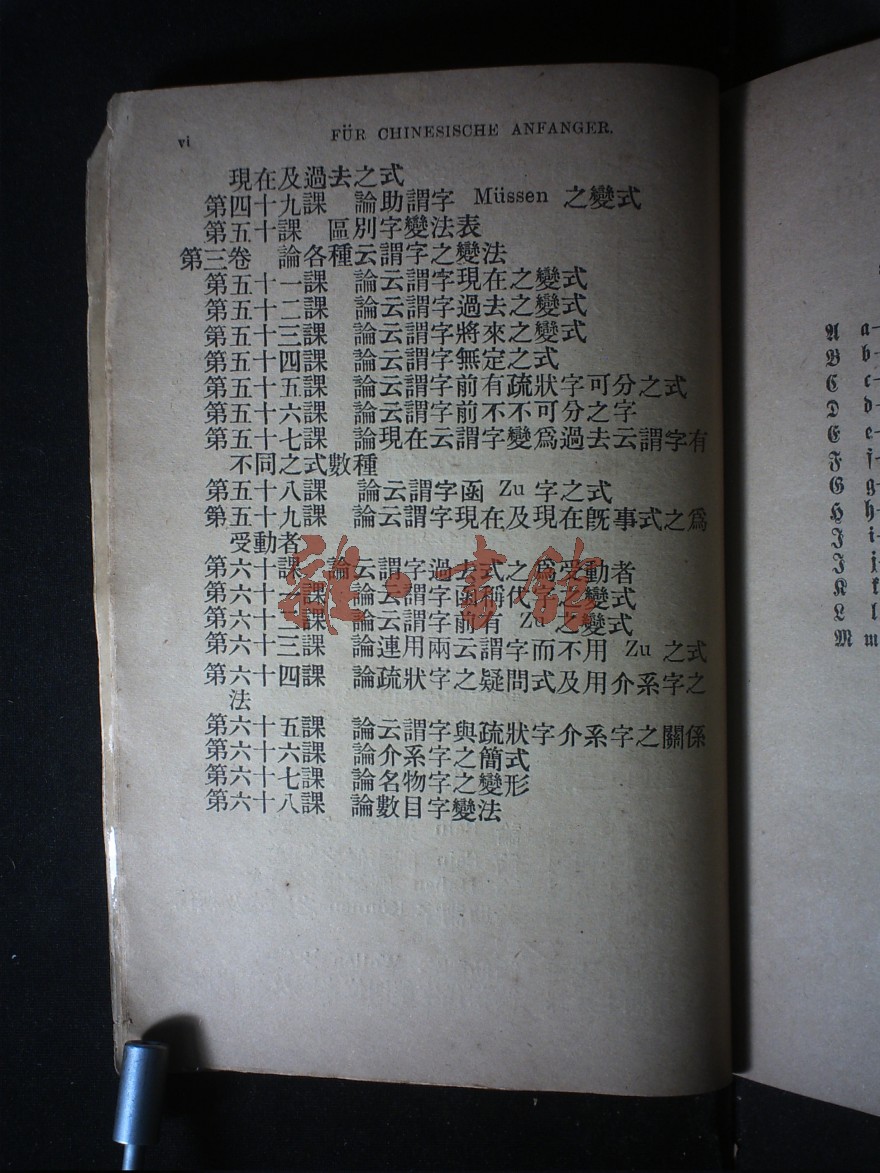 vi
FÜR CHINESISCHE ANFANGER.
現在及過去之式
第四十九課 論助謂字 Müssen 之變式
第五十課 區別字變法表
第三卷 論各種云謂字之變法
第五十一課 論云謂字現在之變式
第五十二課 論云謂字過去之變式
第五十三課 論云謂字將來之變式
第五十四課 論云謂字無定之式
第五十五課 論云謂字前有疏狀字可分之式
第五十六課 論云謂字前不不可分之字
第五十七課 論現在云謂字變爲過去云謂字有
不同之式數種
第五十八課 論云謂字函 Zu 字之式
第五十九課 論云謂字現在及現在旣事式之爲
受動者
第六十課 論云謂字過去式之爲受動者
第六十一課 論云謂字函稱代字之變式
第六十二課 論云謂字前有 Zu 之變式
第六十三課 論連用兩云謂字而不用 Zu 之式
第六十四課 論疏狀字之疑問式及用介系字之
法
第六十五課 論云謂字與疏狀字介系字之關係
第六十六課 論介系字之簡式
第六十七課 論名物字之變形
第六十八課 論數目字變法
雜·書館
A a
B b
C c
D d
E e
F f
G g
H h
I i
J j
K k
L l
M m